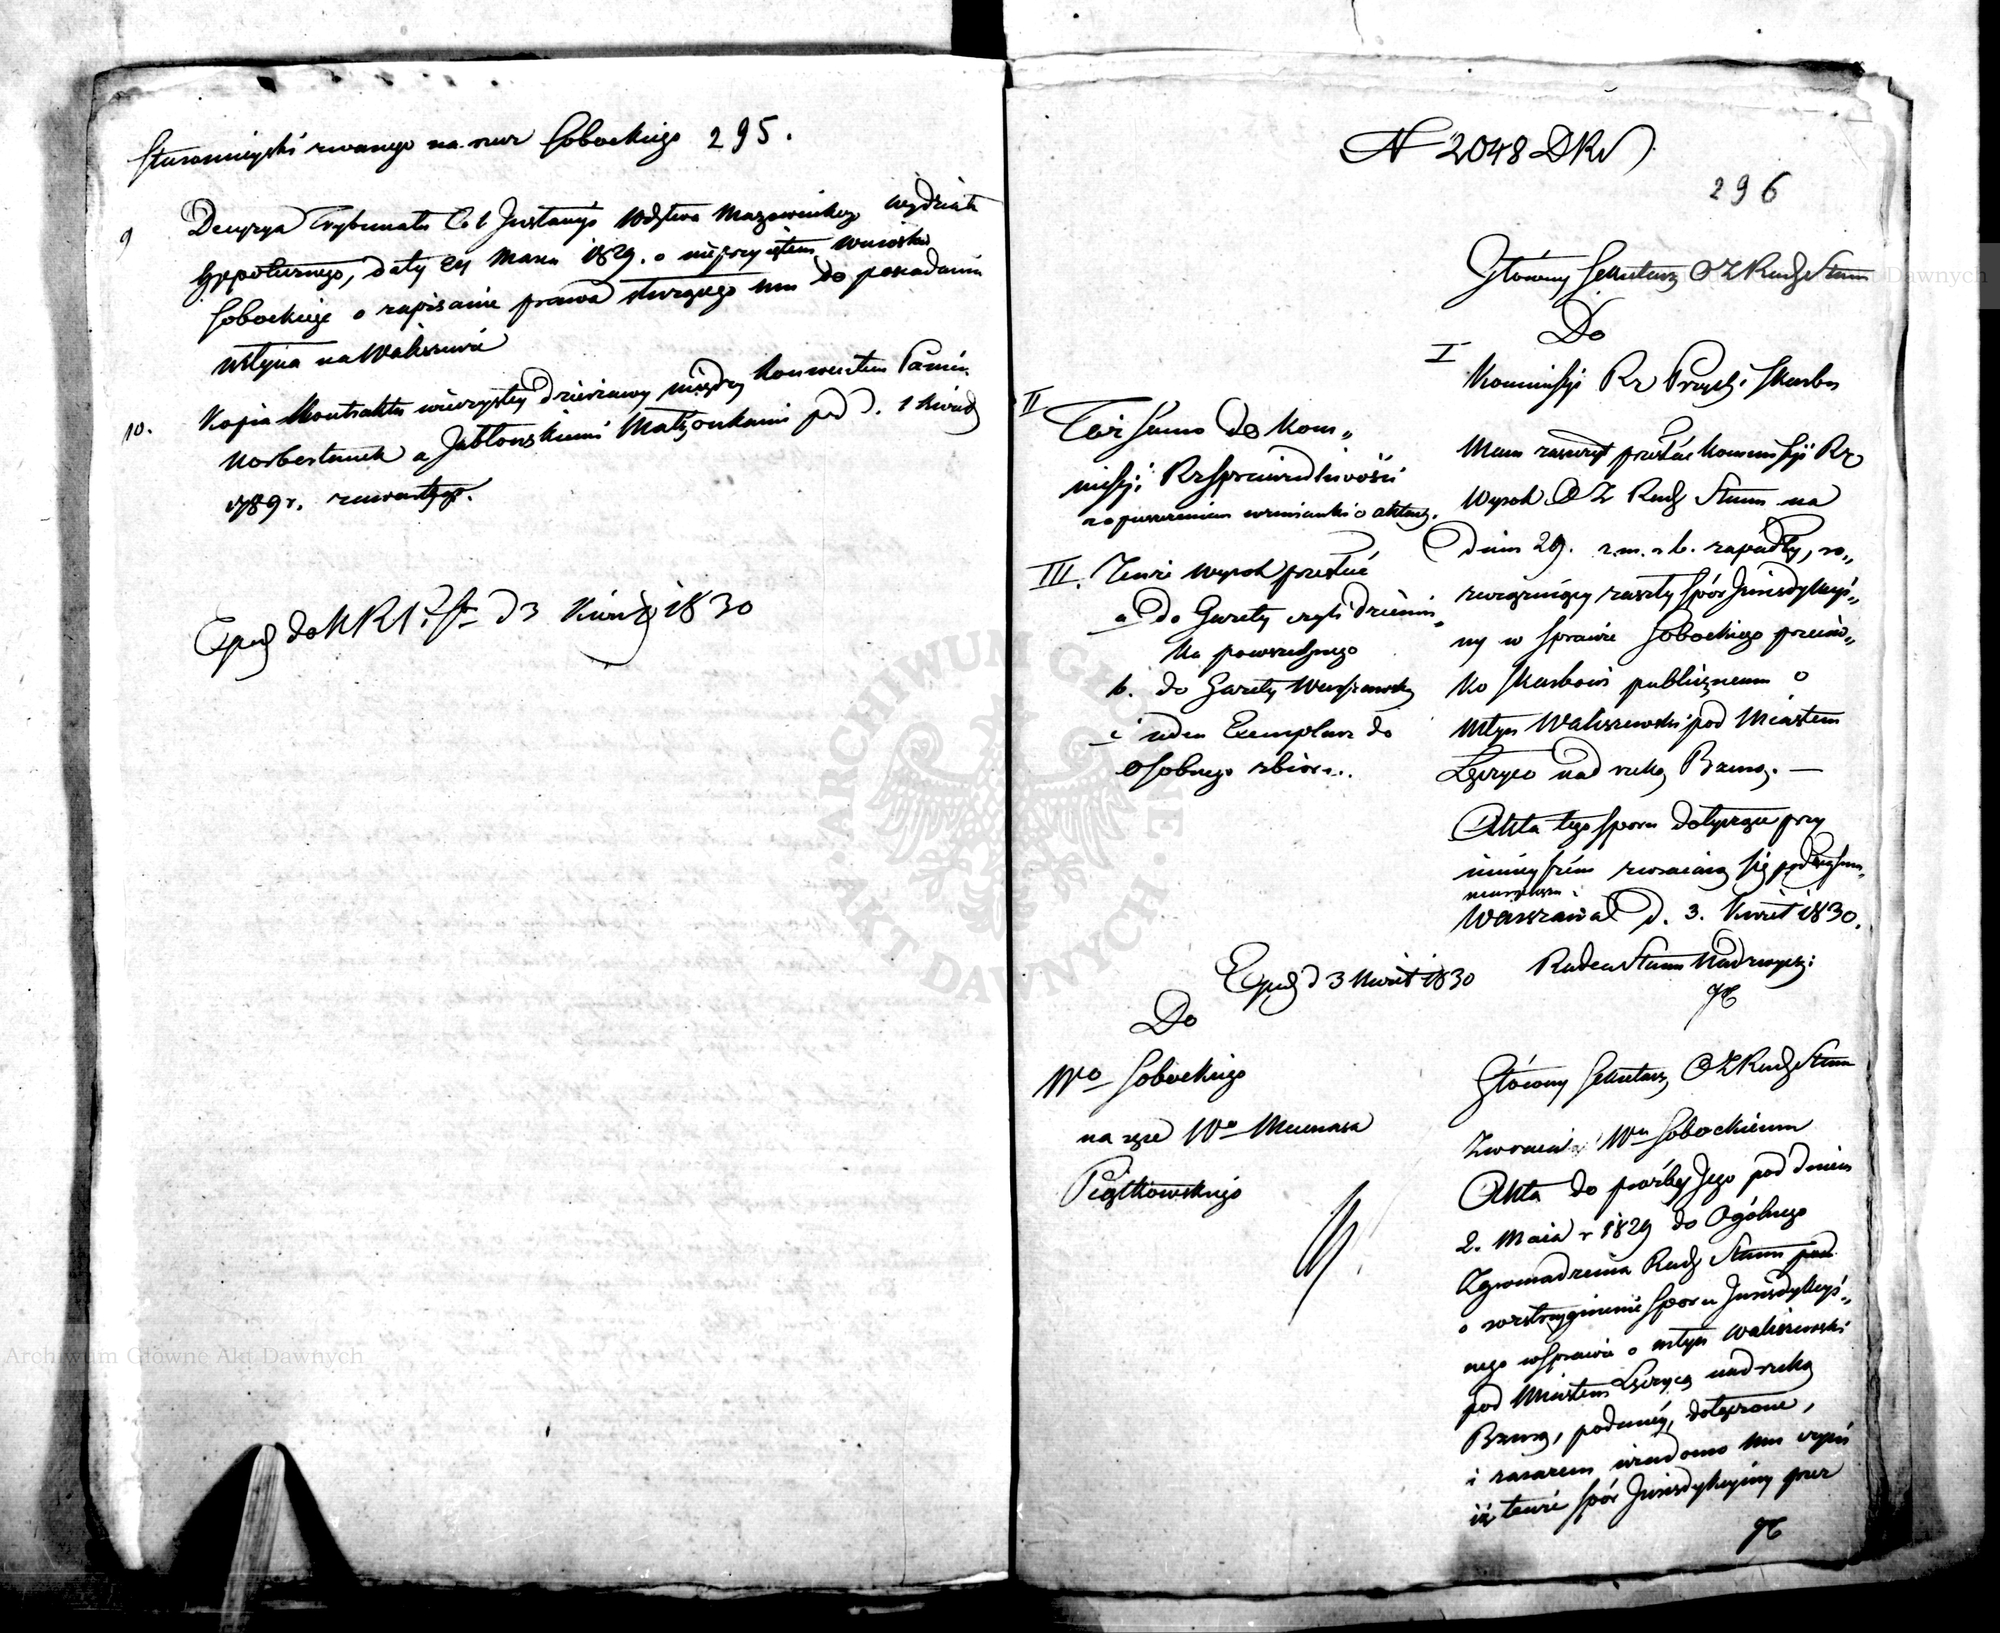 Staromieyski zwanego na rzecz Sobockiego 295.
9 Decyzya Trybunału Col Instancyi Wdztwa Mazowieckiego Wydziału
Hypotecznego, daty 24 Marca 1829. o nieprzyjętem wniosku
Sobockiego o zapisanie prawa służącego mu do posiadania
młyna na Waliszewie
10. Kopia Kontraktu wieczystey dzierżawy między Konwentem Panien
Norbertanek a Jabłonskiemi Małżonkami pod d. 1 Kwiet
1789 r. zawartego.
Exped do KRP. i Sk d 3 Kwiet 1830
N 2048 DKS
296
Główny Sekretarz OZ Rady Stanu
Do
I
Kommissyi Rz Przych i Skarbu
Mam zaszczyt przesłać Kommissyi Rz
Wyrok OZ Rady Stanu na
dniu 29. z. m. r. b. zapadły, ro„
związuiący zaszły Spór Jurisdykcyi„
ny w Sprawie Sobockiego przeciw„
ko Skarbowi publicznemu o
Młyn Waliszewski pod Miastem
Łęczyca nad rzeką Bzurą. —
Akta tego Sporu dotyczące przy
ninieyszém zwracaią się
Warszawa d. 3. Kwiet 1830.
Radca Stanu Nadzwycz:
II
Toż samo do Kom„
missyi Rz Sprawiedliwości
z opuszczeniem wzmianki o aktach.
III. Tenże wyrok przesłać
a do Gazety czyli Dzienni„
ka powszechnego
b. do Gazety Warszawsky
c ieden Exemplarz do
Osobnego zbioru..
Exped d 3 Kwiet 1830
Do
Wo Sobockiego
na ręce Wo Mecenasa
Piątkowskiego
Główny Sekretarz OZ Rady Stanu
Zwraca Wu Sobockiemu
Akta do prośby Jego pod dniem
2. Maia r 1829 do Ogólnego
Zgromadzenia Rady Stanu
o rozstrzygnienie Sporu Jurisdykcyi„
nego w Sprawie o młyn Waliszewski
pod Miastem Łęczycą nad rzeką
Bzurą, podaney, dołączone,
i zarazem wiadomo mu czyni
iż tenże Spór Jurisdykcyiny przez
Archiwum Główne Akt Dawnych
ARCHIWUM GŁÓWNE AKT DAWNYCH